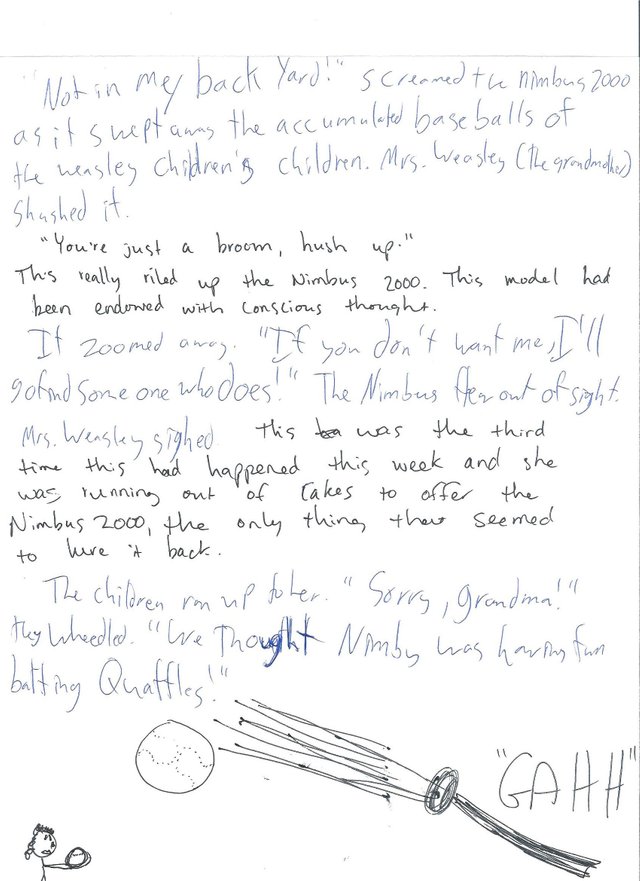 "Not in my back yard!" screamed the nimbus 2000
as it swept away the accumulated baseballs of
the weasley children's children. Mrs. Weasley (The grandmother)
shushed it.
"You're just a broom, hush up."
This really riled up the Nimbus 2000. This model had
been endowed with conscious thought.
It zoomed away. "If you don't want me, I'll
go find some one who does!" The Nimbus flew out of sight.
Mrs. Weasley sighed This was the third
time this had happened this week and she
was running out of cakes to offer the
Nimbus 2000, the only thing that seemed
to lure it back.
The children ran up to her. "Sorry, grandma!"
they wheedled. "We Thought Nimby was having fun
batting Quaffles!"
"GAHH"